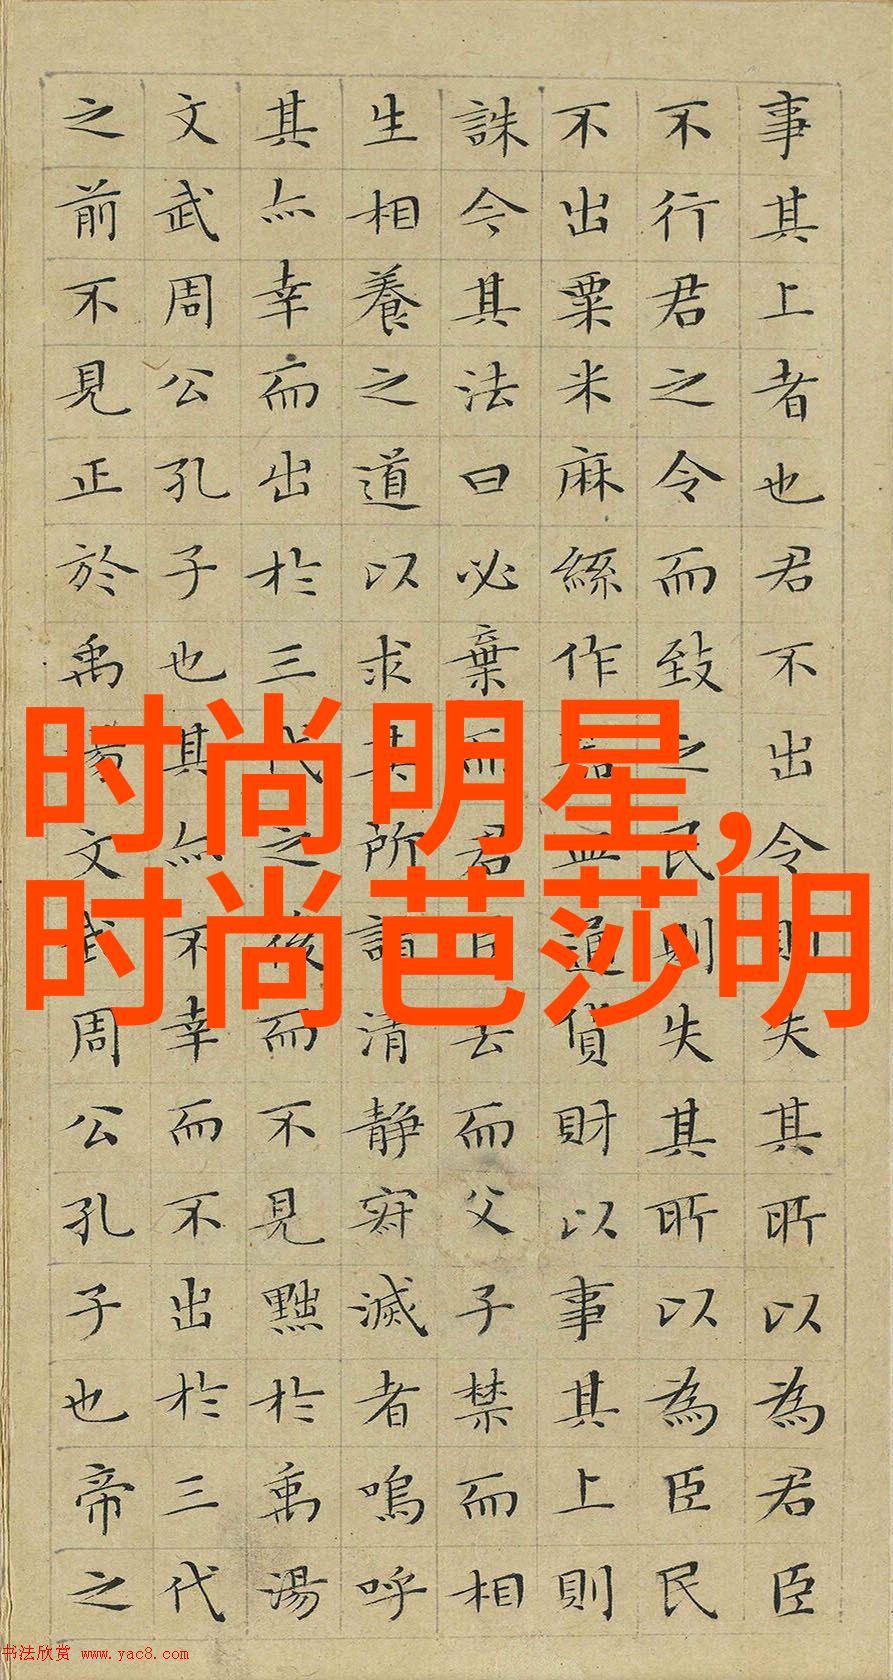 事其上者也君不出令則失其所以為君臣
不行君之令而致之民則失其所以為臣民
不出粟米麻絲作器皿通貨財以事其上則
誅今其法曰必棄而君臣去而父子禁而相
生相養之道以求其所謂清静寂滅者嗚呼
其亦幸而出於三代之後而不見黜於禹湯
文武周公孔子也其亦不幸而不出於三代
之前不見正於禹湯文武周公孔子也帝之
时尚明星,
时尚芭莎明
书法欣赏 www.yac8.com